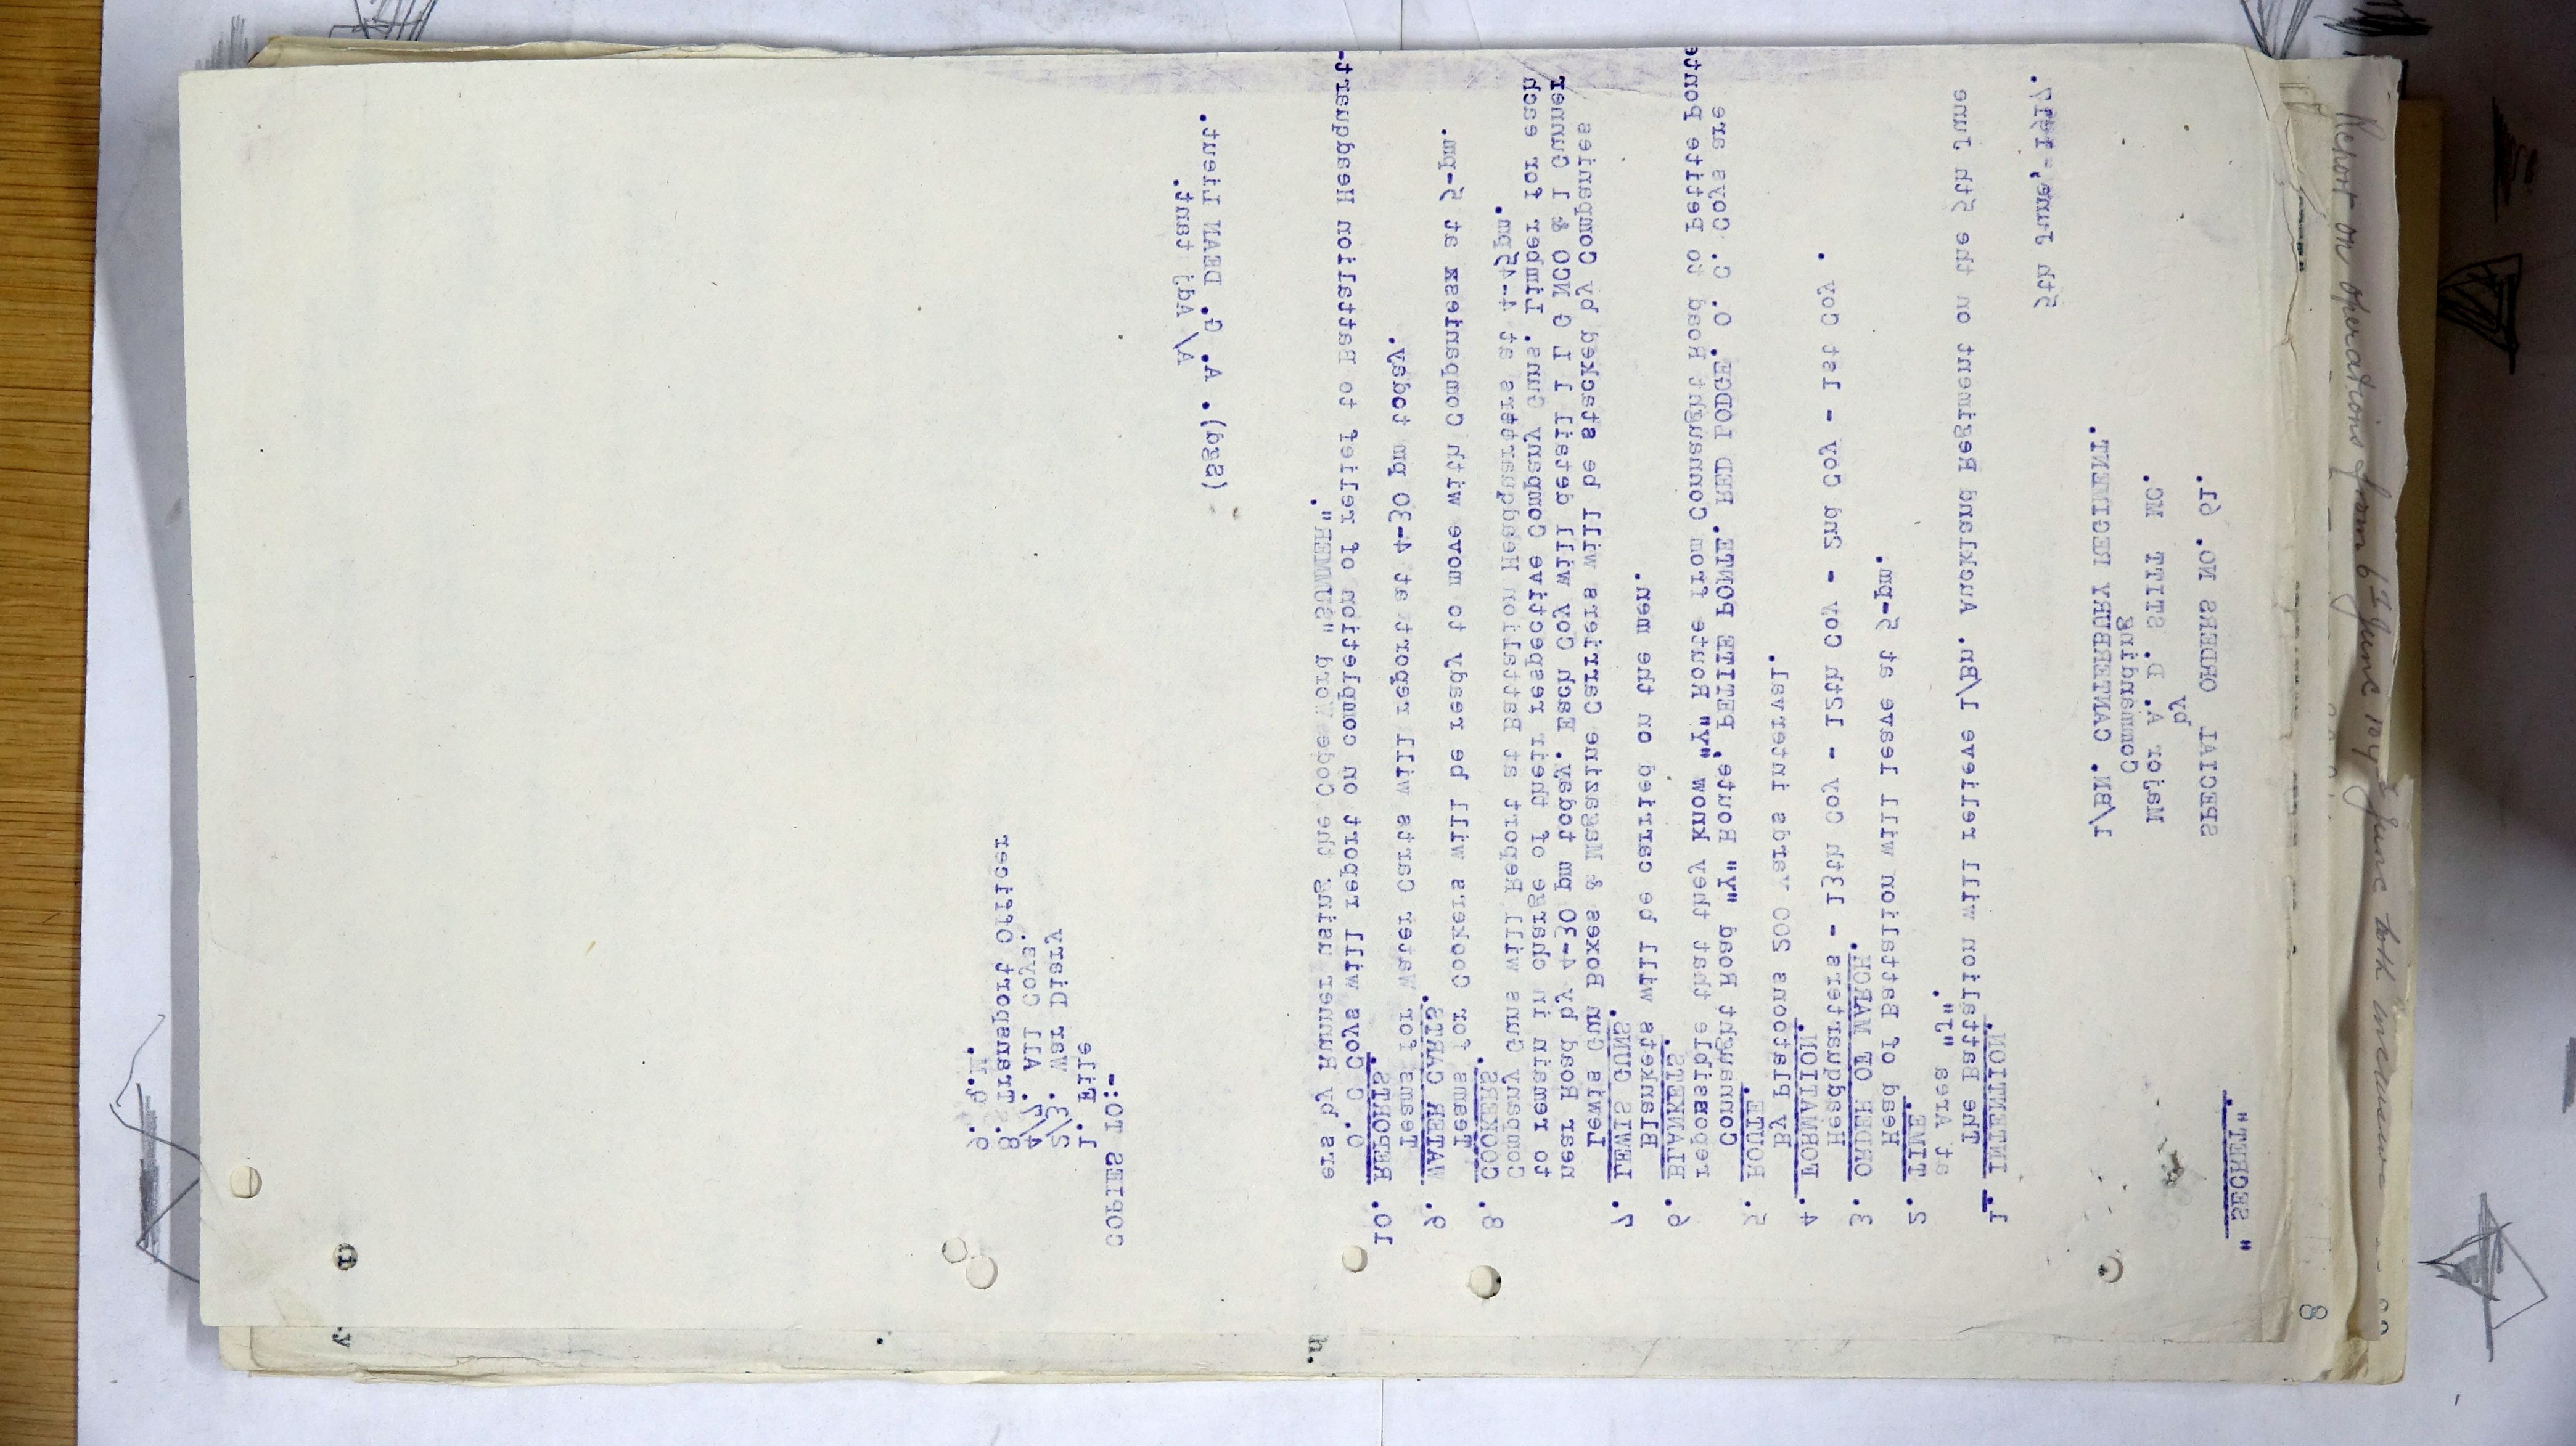 " SECRET".
SPECIAL ORDERS NO. 61.
by
Major A. D. STITT MC.
Commanding
1/BN. CANTERBURY REGIMENT.
5th June, 1917.
1. INTENTION.
The Battalion will relieve 1/Bn. Auckland Regiment on the 5th June
at Area "J".
2. TIME.
Head of Battalion will leave at 5-pm.
3. ORDER OF MARCH.
Headquarters - 13th Coy - 12th Coy - 2nd Coy - 1st Coy .
4. FORMATION.
By Platoons 200 Yards interval.
5. ROUTE.
Connaught Road "Y" Route, PETITE PONTE. RED LODGE. O. C. Coys are
reponsible that they know "Y" Route from Connaught Road to Petite Ponte
6. BLANKETS.
Blankets will be carried on the men.
7. LEWIS GUNS.
Lewis Gun Boxes & Magazine Carriers will be stacked by Companies
near Road by 4-30 pm today. Each Coy will detail 1 L G NCO & 1 Gunner
to remain in charge of their respective Company Guns. Limber for each
Company Guns will Report at Battalion Headquarters at 4-45pm.
8. COOKERS.
Teams for Cookers will be ready to move with Companiesx at 5-pm.
9. WATER CARTS.
Teams for Water Carts will report at 4-30 pm today.
10. REPORTS.
O. C Coys will report on completion of relief to Battalion Headquart-
ers by Runner using the Code word "SUMMER".
(Sgd) . A. G. DEAN Lieut.
A/ Adj tant.
COPIES TO:-
1. File
2/3. War Diary
4/7. All Coys.
8. Transport Officer
9. Q.M.
Report on operations from 6th June 1917 June both inclusive
8